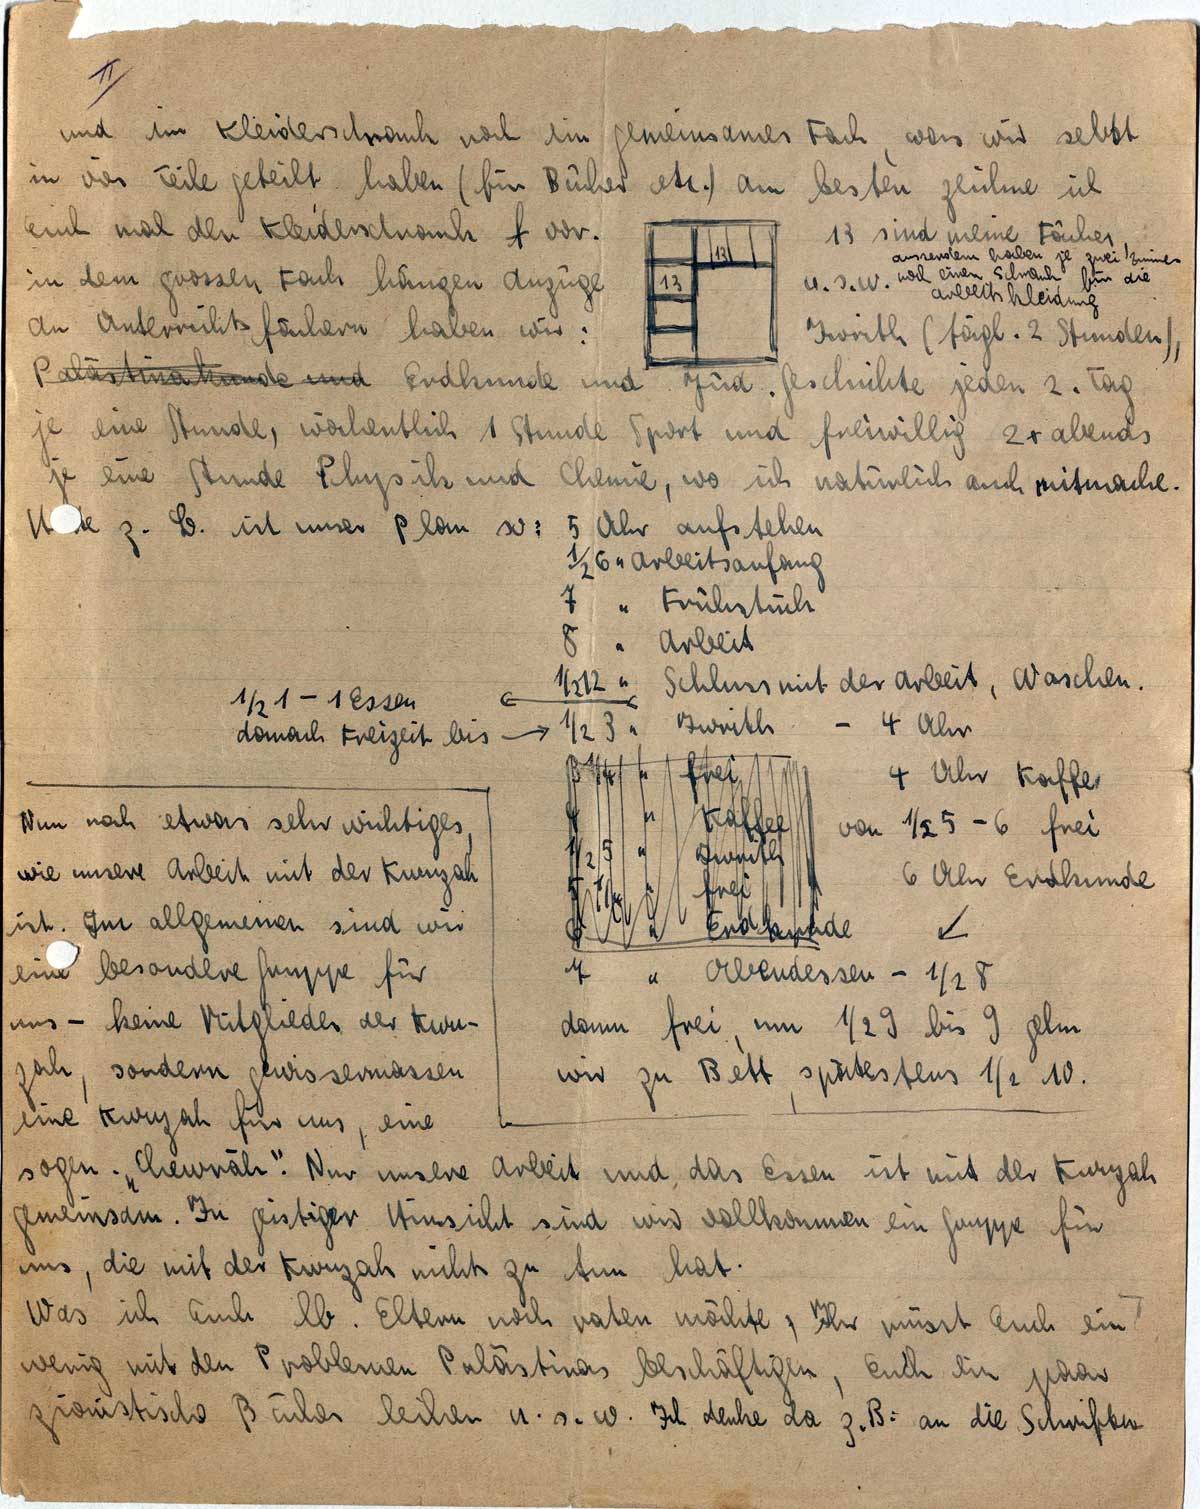 II
und im Kleiderschrank noch ein gemeinsames Fach, was wir selbst
in vier Teile geteilt haben (für Bücher etc.) am besten zeichne ich
euch mal den Kleiderschrank vor.
13
13
13 sind meine Fächer,
ausserdem haben je zwei Zimmer
noch einen Schrank für die
Arbeitskleidung
in dem grossen Fach hängen Anzüge u.s.w.
An Unterrichtsfächern haben wir: Iwrith (tägl. 2 Stunden),
Palästinakunde und Erdkunde und Jüd. Geschichte jeden 2. Tag
je eine Stunde, wöchentlich 1 Stunde Sport und freiwillig 2x abends
je eine Stunde Physik und Chemie, wo ich natürlich auch mitmache.
z. B. ist unser Plan so: 5 Uhr aufstehen
1/2 6 " Arbeitsanfang
7 " Frühstück
8 " Arbeit
1/2 12 " Schluss mit der Arbeit, Waschen.
1/2 1 – 1 Essen
danach Freizeit bis → 1/2 3 " Iwrith – 4 Uhr
frei
" Kaffee
1/2 5 " Iwrith
" frei
6 " Erdkunde
4 Uhr Kaffee
von 1/2 5 – 6 frei
6 Uhr Erdkunde
7 " Abendessen – 1/2 8
dann frei, um 1/2 9 bis 9 gehn
wir zu Bett, spätestens 1/2 10.
Nun noch etwas sehr wichtiges,
wie unsere Arbeit mit der Kwuzah
ist. Im allgemeinen sind wir
eine besondere Gruppe für
uns – keine Mitglieder der Kwu-
zah, sondern gewissermassen
eine Kwuzah für uns, eine
sogen. „Chewräh". Nur unsere Arbeit und das Essen ist mit der Kwuzah
gemeinsam. In geistiger Hinsicht sind wir vollkommen ein Gruppe für
uns, die mit der Kwuzah nichts zu tun hat.
Was ich Euch lb. Eltern noch raten möchte, Ihr müsst Euch ein
wenig mit den Problemen Palästinas beschäftigen, Euch ein paar
zionistische Bücher leihen u.s.w. Ich denke da z.B. an die Schriften